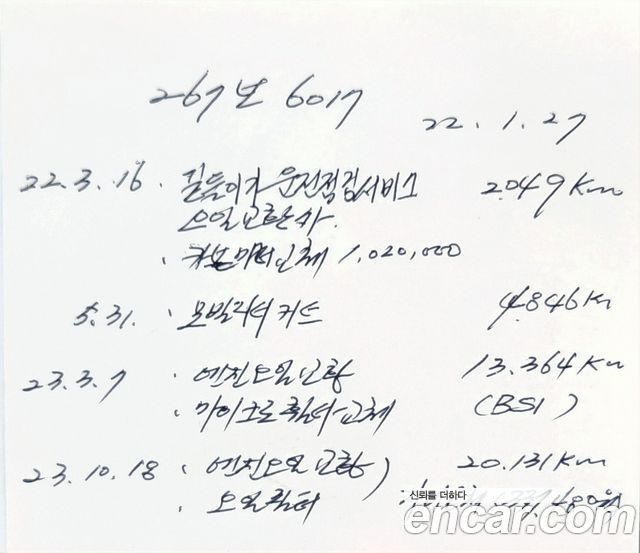 267보 6017
22.1.27
22.3.16 · 길들이기 운전점검서비스 2049Km
오일교환차.
· 카본매터교체 1,020,000
5.31. · 모빌리티 키트 4.846Km
23.3.7 · 엔진오일교환 13.364Km
· 마이크로휠터교체 (BSI)
23.10.18 · 엔진오일교환) 20.131Km
· 오일휠터 480원
신뢰를 더하다
encar.com